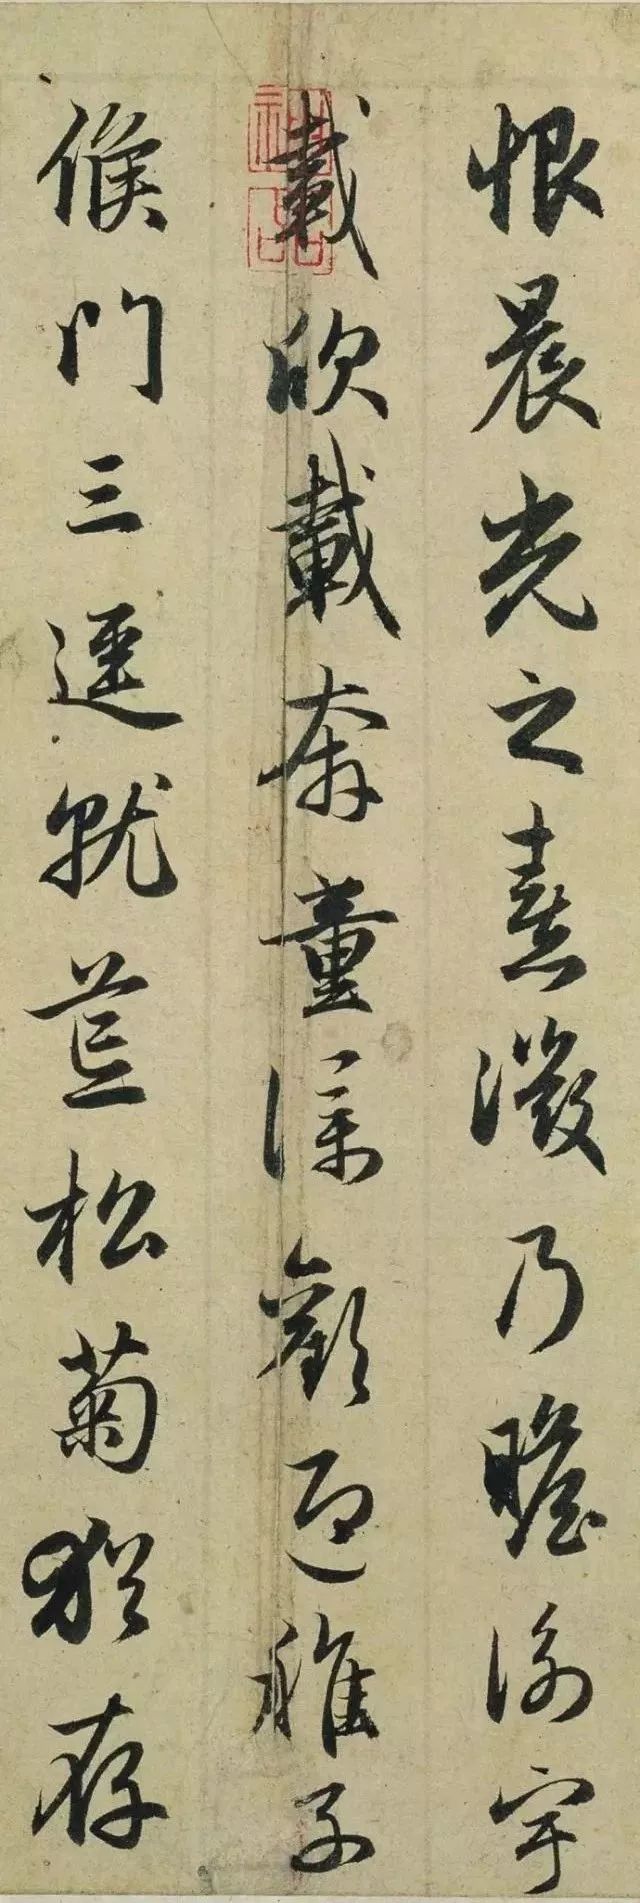 恨晨光之熹微乃瞻衡宇
載欣載奔童僕歡迎稚子
候門三逕就荒松菊猶存
神品